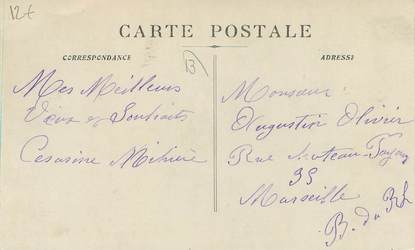 12€
CARTE POSTALE
CORRESPONDANCE
ADRESSE
13
Mes Meilleurs
Vœux et Souhaits
Cesarine
Monsieur
Augustin Olivier
Rue
35
Marseille
B. du Rh